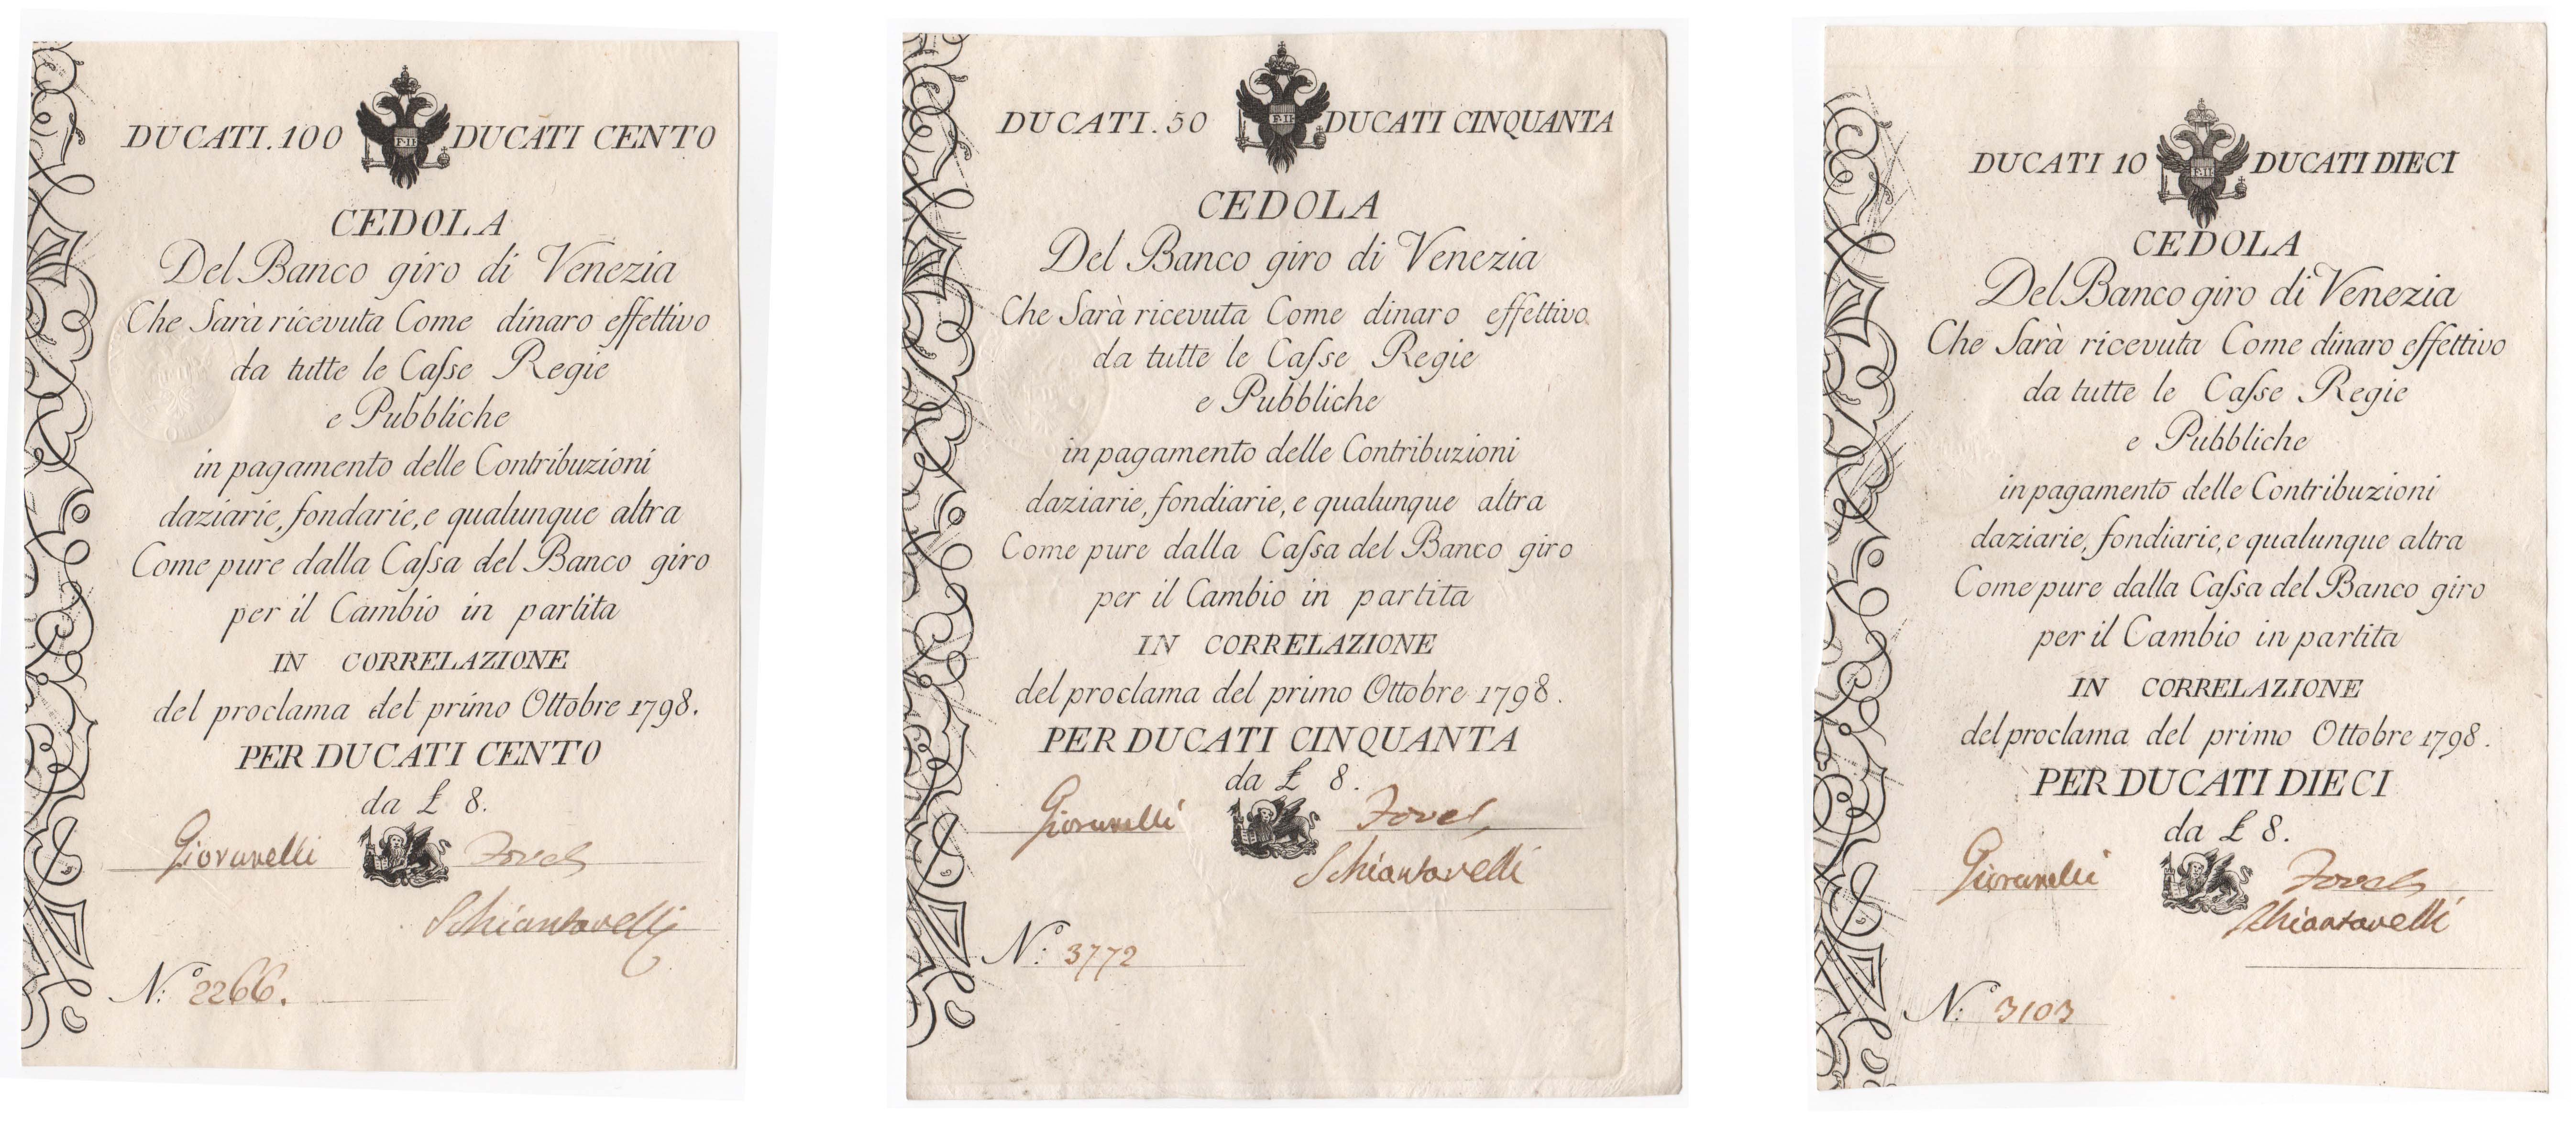 DUCATI.100 F.II DUCATI CENTO
CEDOLA
Del Banco giro di Venezia
Che Sarà ricevuta Come dinaro effettivo
da tutte le Caſse Regie
e Pubbliche
in pagamento delle Contribuzioni
daziarie, fondarie, e qualunque altra
Come pure dalla Caſsa del Banco giro
per il Cambio in partita
IN CORRELAZIONE
del proclama del primo Ottobre 1798.
PER DUCATI CENTO
da £ 8.
Giovanelli Zovel
Schiantarelli
N.° 2266.
DUCATI.50 F.II DUCATI CINQUANTA
CEDOLA
Del Banco giro di Venezia
Che Sarà ricevuta Come dinaro effettivo
da tutte le Caſse Regie
e Pubbliche
in pagamento delle Contribuzioni
daziarie, fondiarie, e qualunque altra
Come pure dalla Caſsa del Banco giro
per il Cambio in partita
IN CORRELAZIONE
del proclama del primo Ottobre 1798.
PER DUCATI CINQUANTA
da £ 8.
Giovanelli Zovel
Schiantarelli
N.° 3772
DUCATI 10 F.II DUCATI DIECI
CEDOLA
Del Banco giro di Venezia
Che Sarà ricevuta Come dinaro effettivo
da tutte le Caſse Regie
e Pubbliche
in pagamento delle Contribuzioni
daziarie, fondiarie, e qualunque altra
Come pure dalla Caſsa del Banco giro
per il Cambio in partita
IN CORRELAZIONE
del proclama del primo Ottobre 1798.
PER DUCATI DIECI
da £ 8.
Giovanelli Zovel
Schiantarelli
N.° 3103